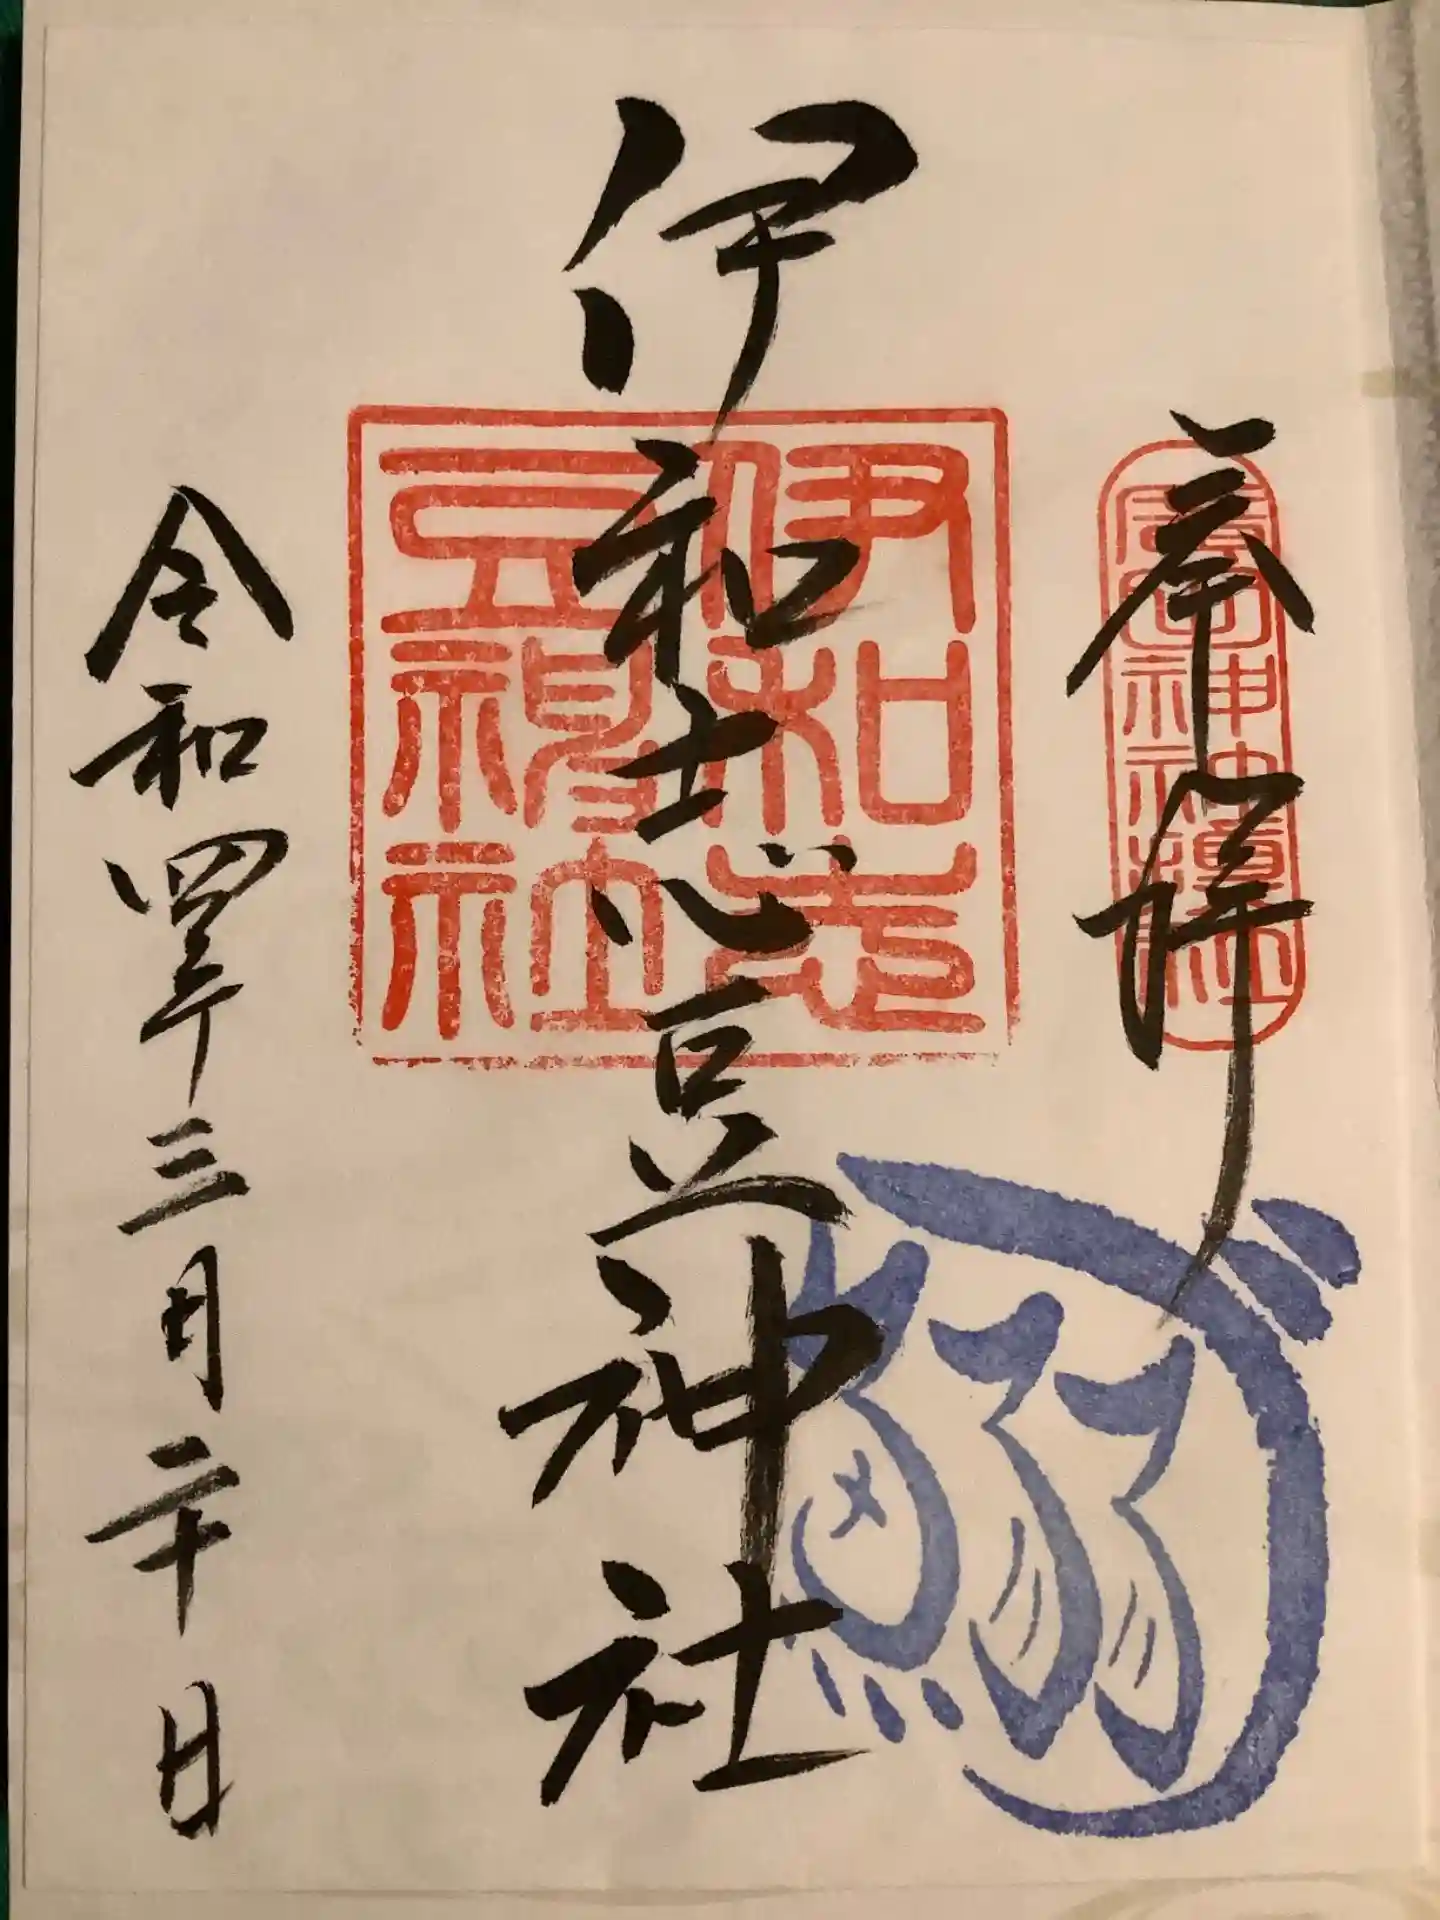 奉拝
伊和志豆神社
令和四年三月二十日
伊和志
豆神社
鰯づ